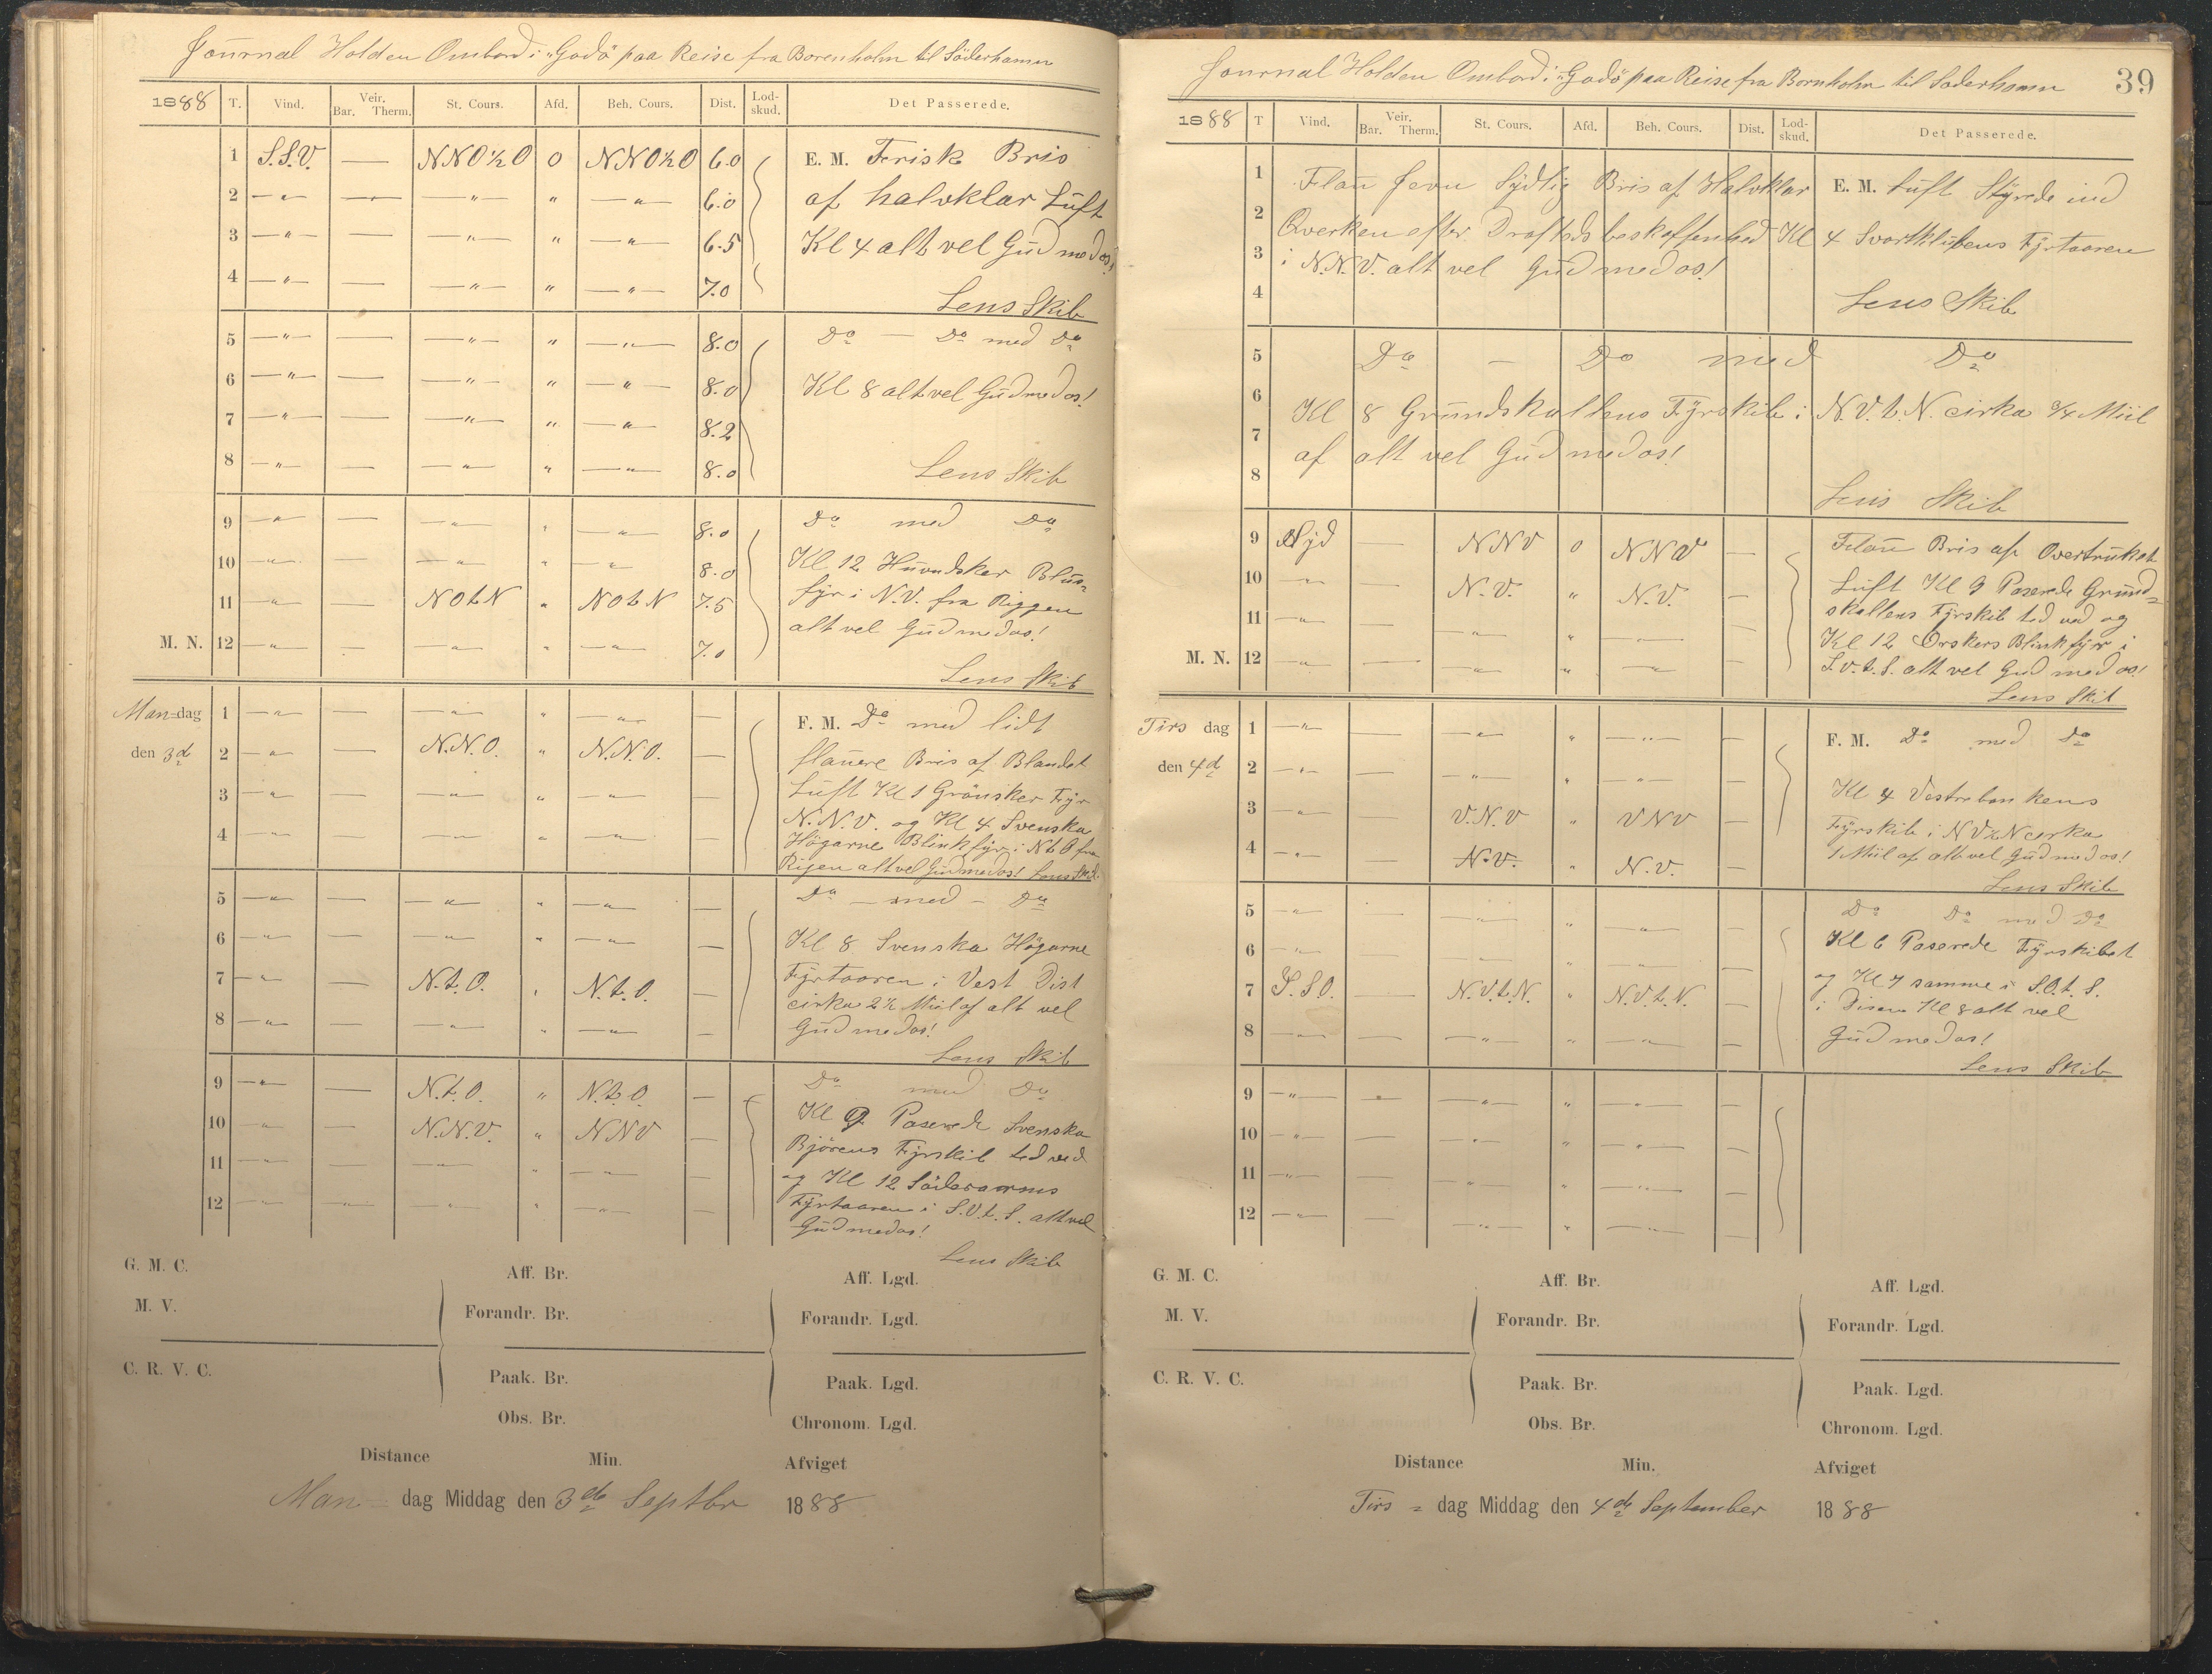 Journal Holden Ombord i "Godö" paa Reise fra Borenholm til Söderhamn
1888 T. Vind. Veir. Bar. Therm. St. Cours. Afd. Beh. Cours. Dist. Lod-skud. Det Passerede.
1 S.S.V. — NNO½O 0 NNO½O 6.0 E. M. Frisk Bris
2 —"— — —"— " —"— 6.0 af halvklar Luft
3 —"— — —"— " —"— 6.5 Kl 4 alt vel Gud med os!
4 —"— — —"— " —"— 7.0
Lens Skib
5 —"— — —"— " —"— 8.0 Do — Do med Do
6 —"— — —"— " —"— 8.0 Kl 8 alt vel Gud med os!
7 —"— — —"— " —"— 8.2
8 —"— — —"— " —"— 8.0 Lens Skib
9 —"— — —"— " —"— 8.0 Do med Do
10 —"— — —"— " —"— 8.0 Kl 12 Huvudsker Blus=
11 —"— — NOtN " NOtN 7.5 fyr i N.V. fra Riggen
alt vel Gud med os!
M. N. 12 —"— — —"— " —"— 7.0
Lens Skib
Man=dag 1 —"— — —"— " —"— — F. M. Do med lidt
den 3d 2 —"— — N.N.O. " N.N.O. — flauere Bris af Blandet
3 —"— — —"— " —"— — Luft Kl 1 Grönsker Fyr
N.N.V. og Kl 4 Svenska
4 —"— — —"— " —"— — Högarne Blinkfyr i NtO fra
Rigen alt vel Gud med os! Lens Skib
5 —"— — —"— " —"— — Do — med — Do
6 —"— — —"— " —"— — Kl 8 Svenska Högarne
7 —"— — N.t.O. " N.t.O. — Fyrtaaren i Vest Dist
cirka 2½ Miil af alt vel
8 —"— — —"— " —"— — Gud med os!
Lens Skib
9 —"— — N.t.O. " N.t.O. — Do med Do
10 —"— — N.N.V. " NNV — Kl 9 Paserede Svenska
Björens Fyrskib ted ved
11 —"— — —"— " —"— — og Kl 12 Söderarms
12 —"— — —"— " —"— — Fyrtaaren i S.V.t.S. alt vel
Gud med os!
Lens Skib
G. M. C. Aff. Br. Aff. Lgd.
M. V. Forandr. Br. Forandr. Lgd.
C. R. V. C. Paak. Br. Paak. Lgd.
Obs. Br. Chronom. Lgd.
Distance Min. Afviget
Man= dag Middag den 3de Septbr 1888
Journal Holden Ombord i "Godö" paa Reise fra Bornholm til Soderhamn 39
1888 T Vind. Veir. Bar. Therm. St. Cours. Afd. Beh. Cours. Dist. Lod-skud. Det Passerede.
1 Flau Jevn Sydlig Bris af Halvklar E. M. Luft Styrede ind
2 Qverken efter Drafteds beskaffenhed Kl 4 Svartklubens Fyrtaaren
3 i N.N.V. alt vel Gud med os!
4 Lens Skib
5 Do — Do med Do
6 Kl 8 Grundskallens Fyrskib i N.V.t.N. cirka ¾ Miil
7 af alt vel Gud med os!
8 Lens Skib
9 Syd — NNV 0 NNV — Flau Bris af Overtrukket
10 —"— — N.V. " N.V. — Luft Kl 9 Paserede Grund=
11 —"— — —"— " —"— — skallens Fyrskib ted ved og
Kl 12 Örskers Blinkfyr i
M. N. 12 —"— — —"— " —"— — S.V.t.S. alt vel Gud med os!
Lens Skib
Tirs dag 1 —"— — —"— " —"— — F. M. Do med Do
den 4d 2 —"— — —"— " —"— —
3 —"— — V.N.V " VNV — Kl 4 Vestrabankens
Fyrskib i NV½N cirka
4 —"— — N.V. " N.V. — 1 Miil af alt vel Gud med os!
Lens Skib
5 —"— — —"— " —"— — Do Do med Do
6 —"— — —"— " —"— — Kl 6 Paserede Fyrskibet
7 S.SO. — N.V.t.N. " N.V.t.N. — og Kl 7 samme i S.O.t.S.
i Disen Kl 8 alt vel
8 —"— — —"— " —"— — Gud med os!
Lens Skib
9 —"— — —"— " —"— —
10 —"— — —"— " —"— —
11 —"— — —"— " —"— —
12 —"— — —"— " —"— —
G. M. C. Aff. Br. Aff. Lgd.
M. V. Forandr. Br. Forandr. Lgd.
C. R. V. C. Paak. Br. Paak. Lgd.
Obs. Br. Chronom. Lgd.
Distance Min. Afviget
Tirs = dag Middag den 4de September 1888